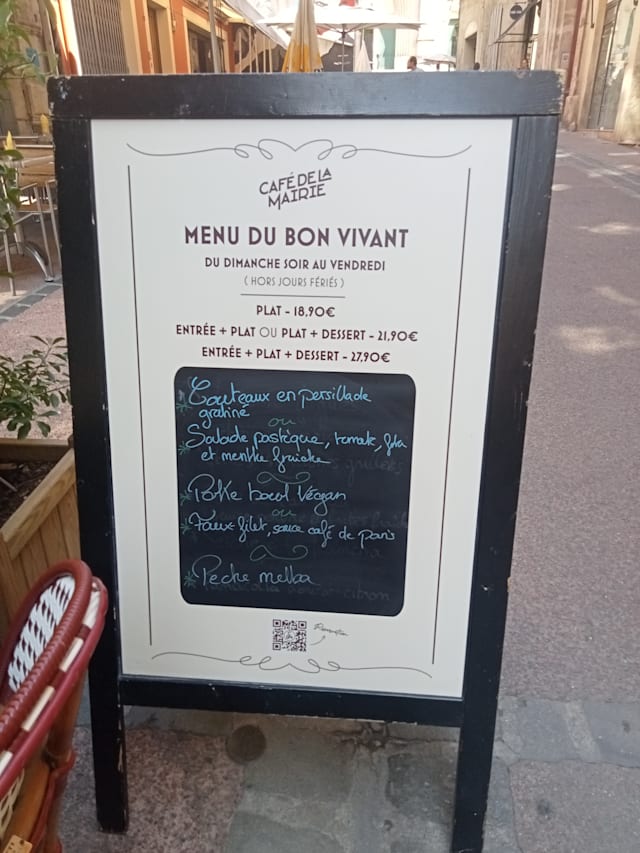 CAFÉ DE LA
MAIRIE
MENU DU BON VIVANT
DU DIMANCHE SOIR AU VENDREDI
( HORS JOURS FÉRIÉS )
PLAT - 18,90€
ENTRÉE + PLAT OU PLAT + DESSERT - 21,90€
ENTRÉE + PLAT + DESSERT - 27,90€
Couteaux en persillade
gratiné
ou
Salade pastèque, tomate, feta
et menthe fraiche
Poke bowl Végan
ou
Faux-filet, sauce café de paris
Peche melba